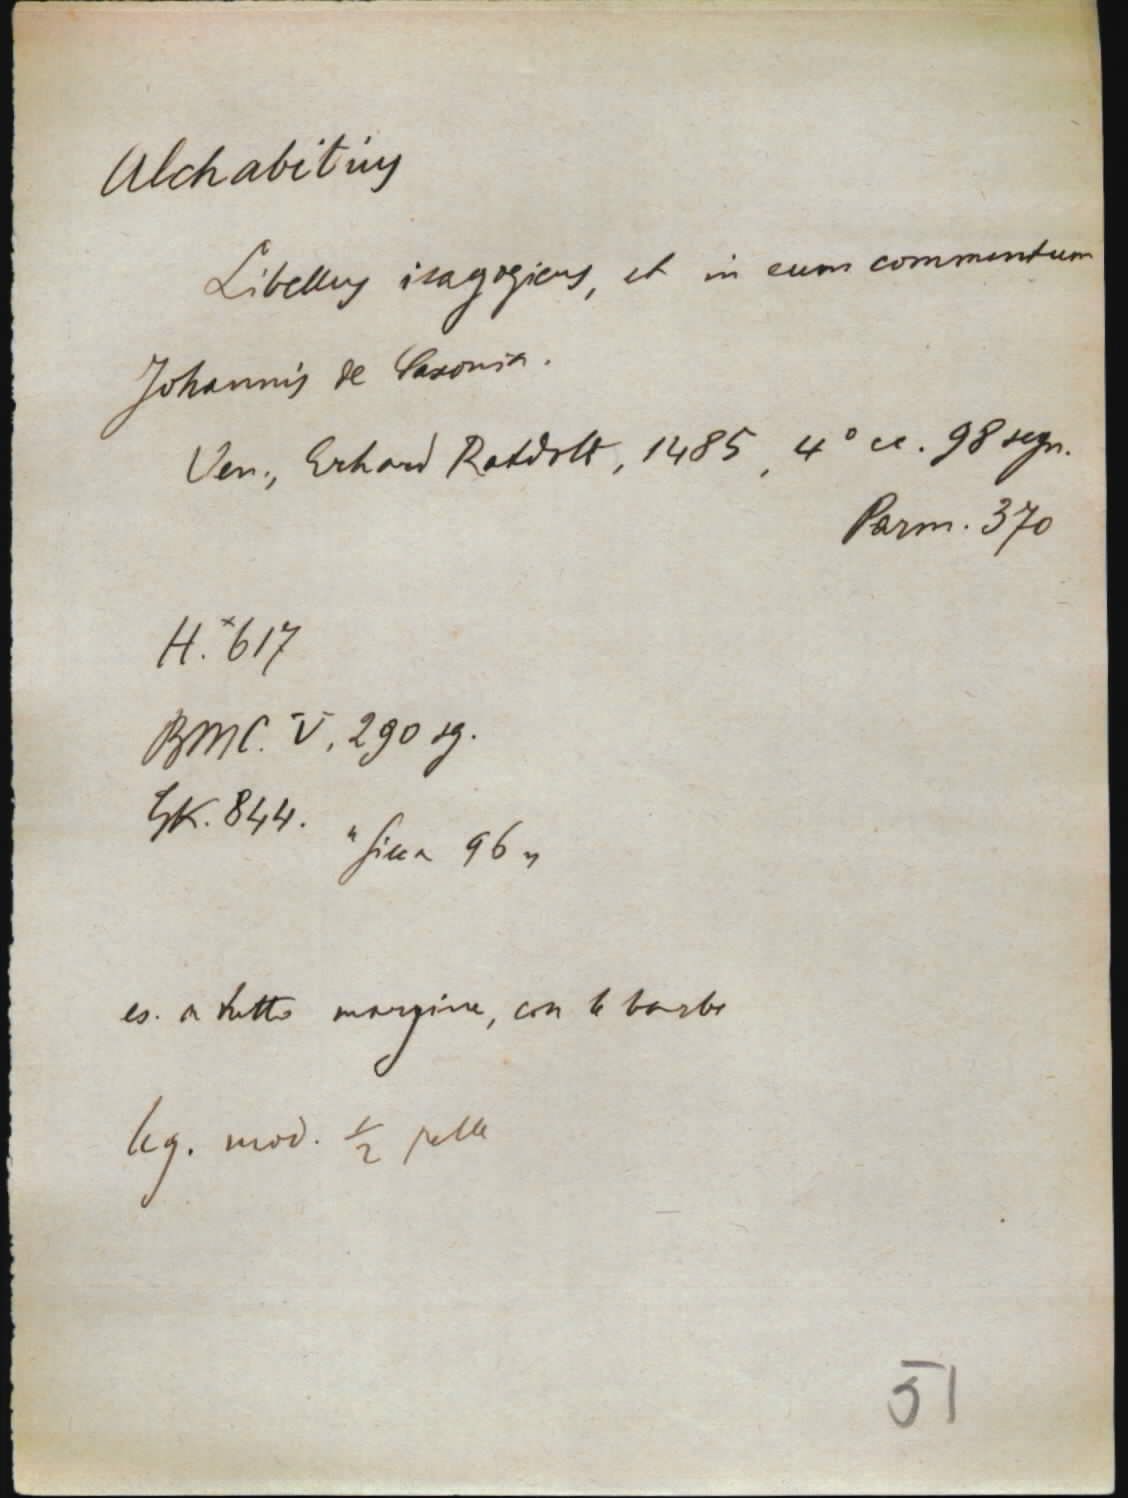 Alchabitius
Libellus isagogicus, et in eum commentum
Johannis de Saxonia.
Ven., Erhard Ratdolt, 1485, 4° cc. 98 segn.
Parm. 370
H.×617
BMC. V, 290 sg.
GK. 844.
96
es. a tutto margine, con le barbe
leg. mod. 1/2 pelle
51